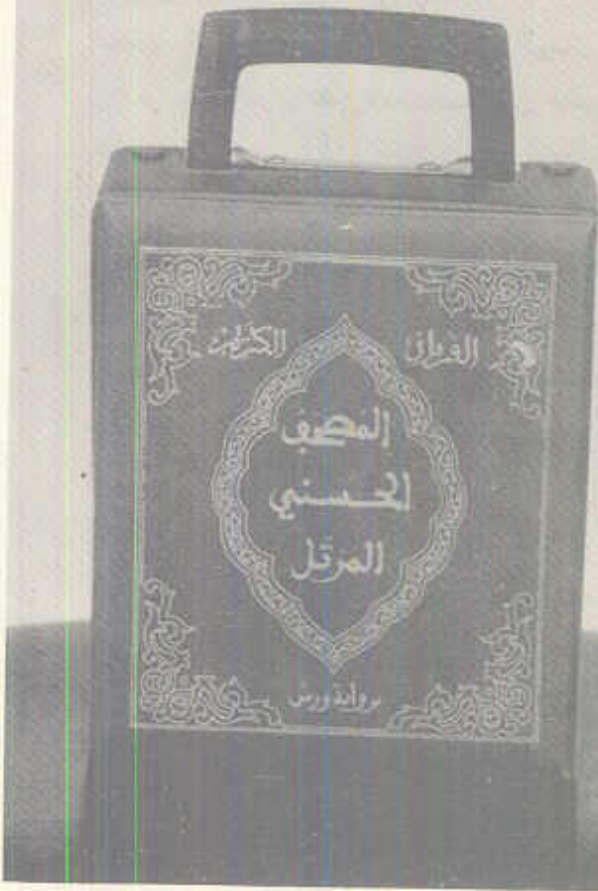 القرآن الكريم
المصحف
الحسني
المرتل
برواية ورش